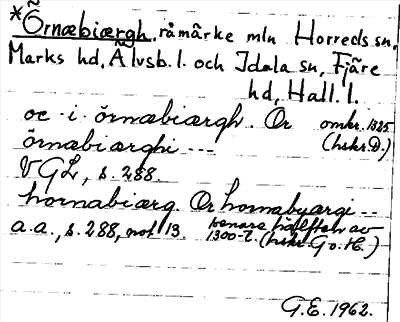 *Õrnæbiærgh, råmärke mln Horreds sn,
Marks hd, Älvsb. l. och Idala sn, Fjäre
hd, Hall. l.
oc · i · örnæbiærgh. Or omkr. 1325
örnæbiærghi --- (hskr. D.)
VGL, s. 288.
hornabiærg. Or hornabyærgi --
a.a., s. 288, not 13. senare hälften av
1300-t. (hskr. G o. H.)
G.E. 1962.